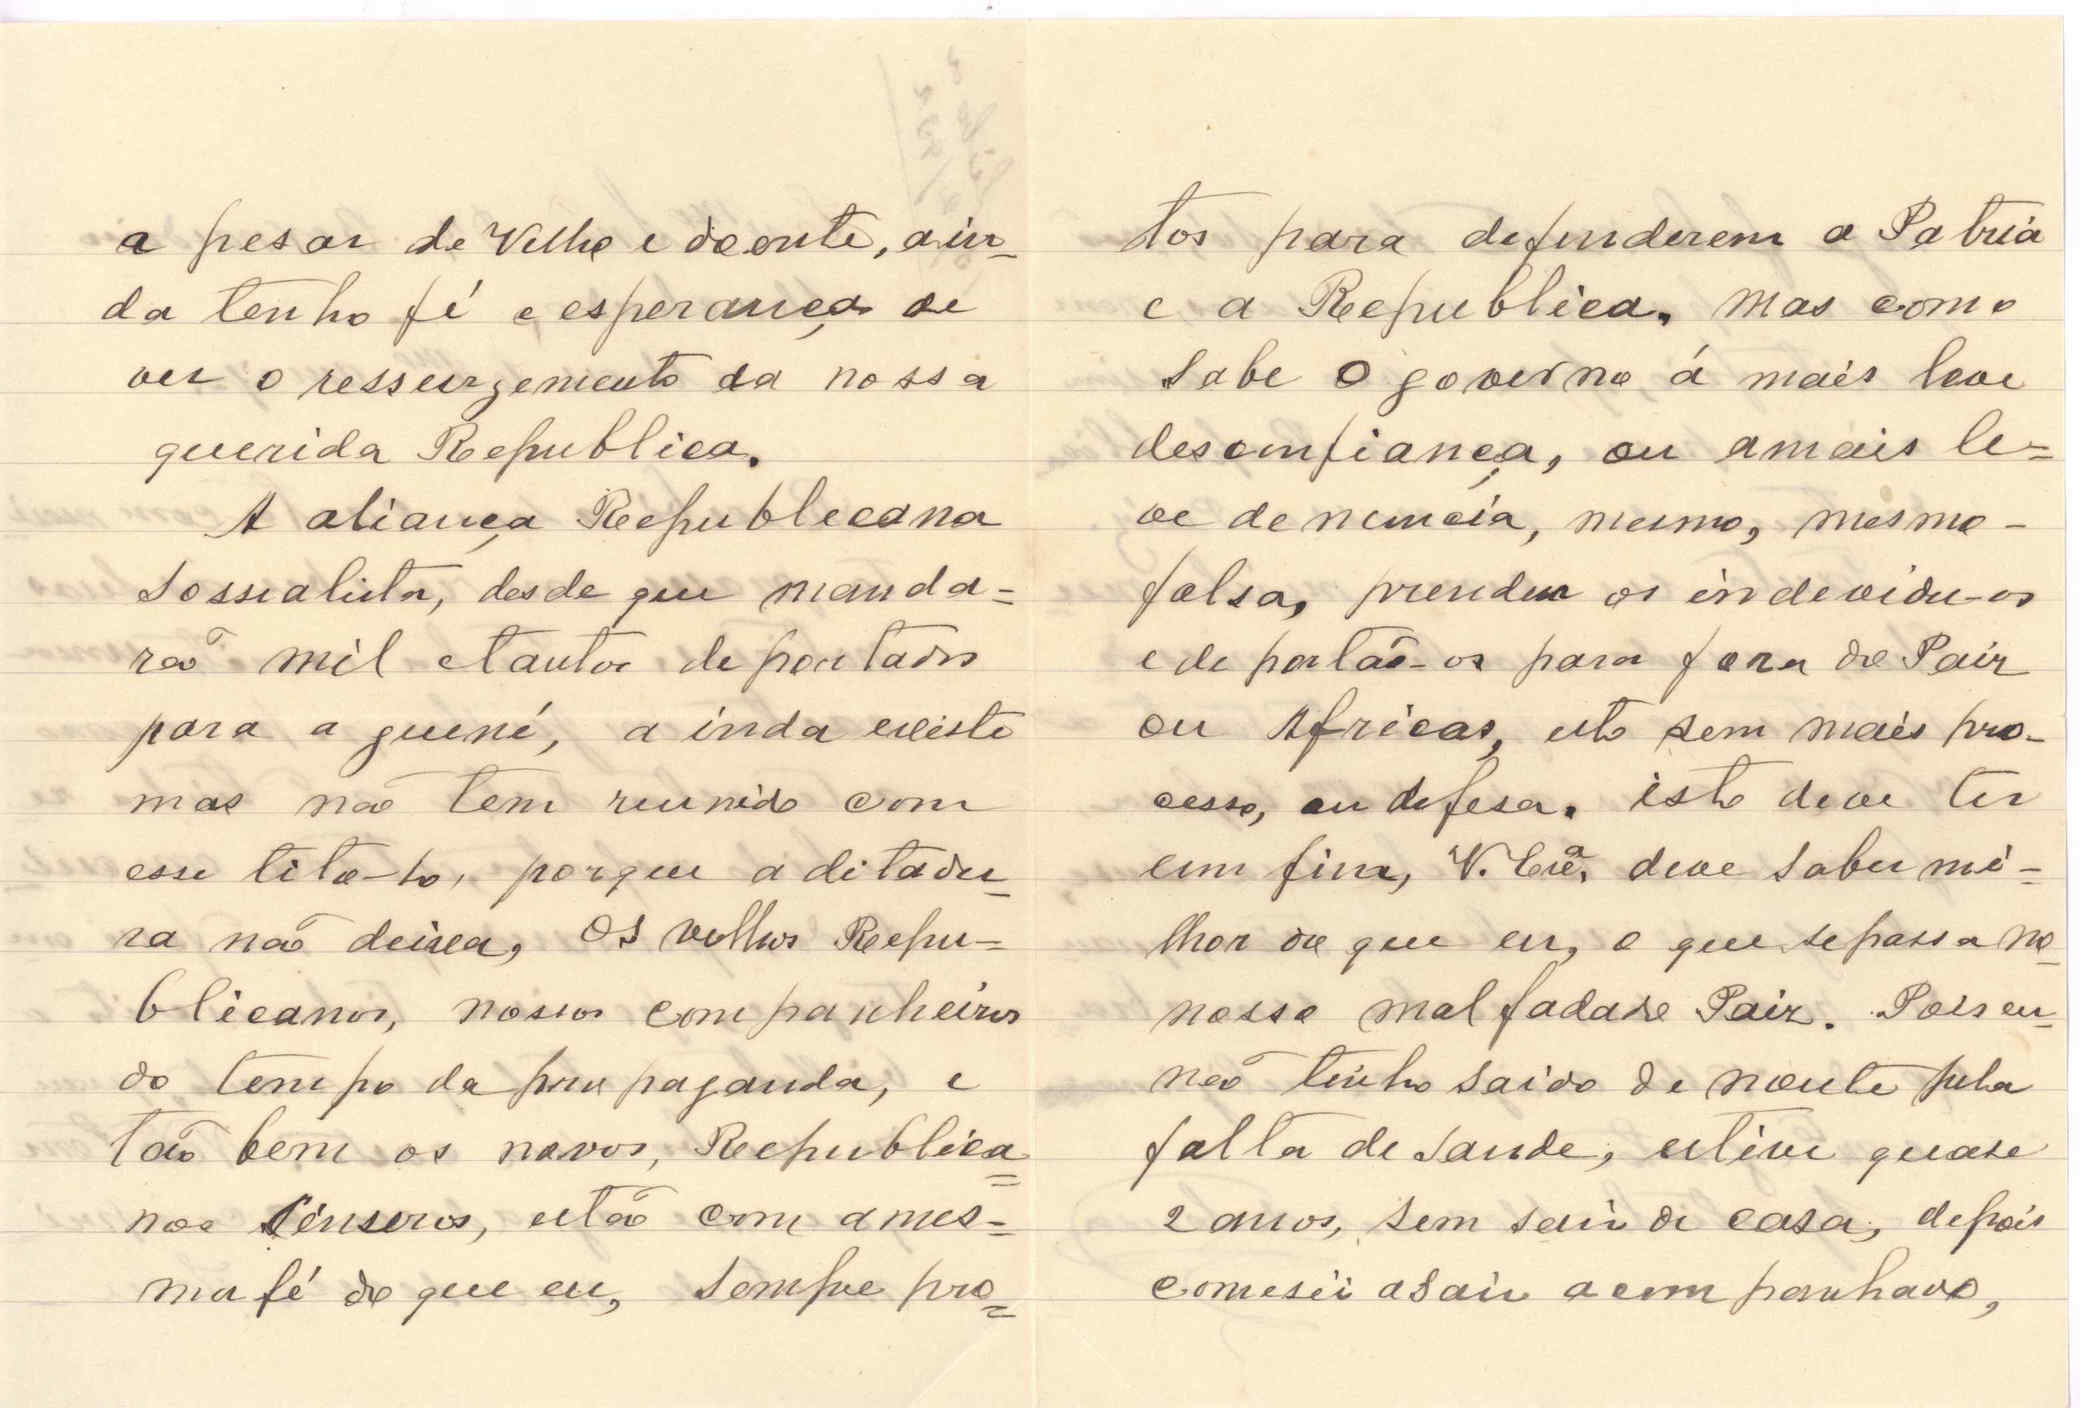 a pesar de Velho e doente, ain-
da tenho fé e esperança de
ver o ressurgemento da nossa
querida Republica.
A aliança Republecana
Sossialista, desde que manda=
rão mil etantos deportados
para a guené, a inda existe
mas não tem reunido com
esse tito-lo, porque a ditadu-
ra não deixa, Os velhos Repu=
blicanos, nossos companheiros
do tempo da propaganda, e
tão bem os novos, Republica=
nos sinseros, estão com a mes=
ma fé do que eu, sempre pro=
tos para defenderem a Patria
e a Republica. Mas como
sabe o governo á mais leve
desconfiança, ou amais le=
ve denuncia, mesmo, mesmo-
falsa, prendem os indevidu-os
e deportão-os para fora do Paiz
ou Africas, isto sem mais pro-
cesso, ou defesa. isto deve ter
um fim, V. Exª. deve saber mi-
lhor do que eu, o que sepassa no-
nosso malfadado Paiz. Pois eu-
não tenho saido de noute pela
falta de saude, estive quase
2 anos, sem sair de casa, depois
comesei asair acompanhado,